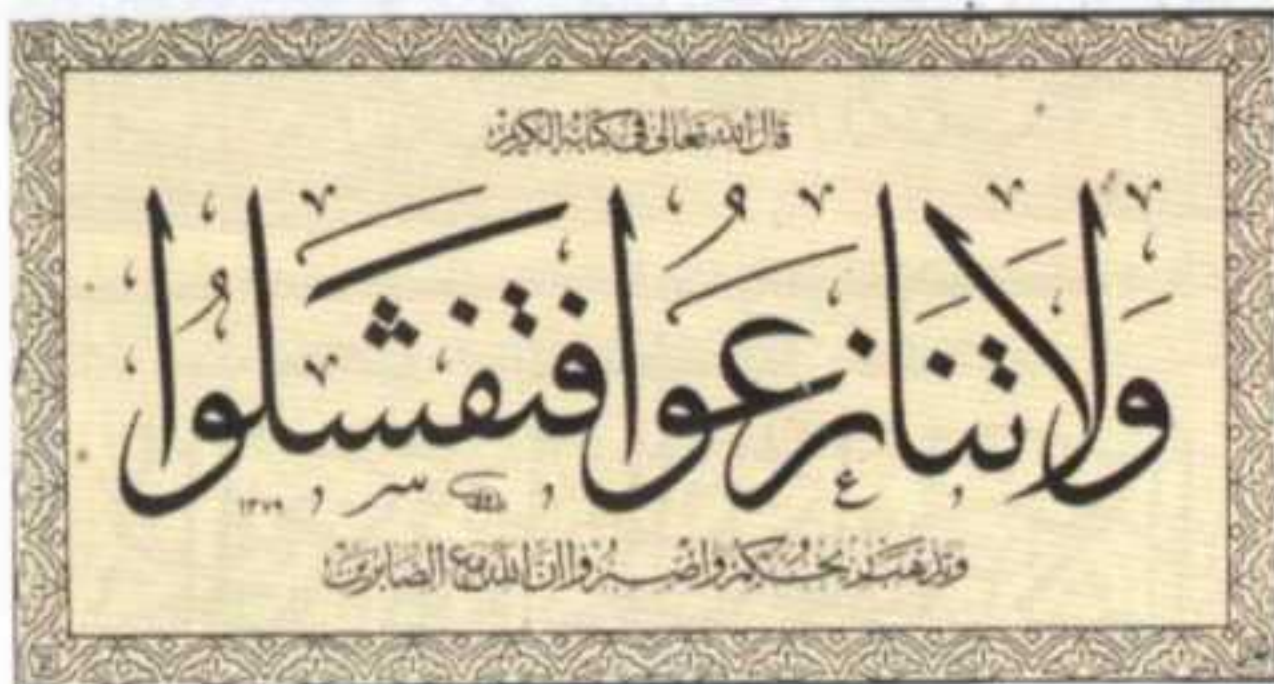 قال الله تعالى في كتابه الكريم
وَلَا تَنَازَعُوا فَتَفْشَلُوا
١٣٧٩
وتذهب ريحكم واصبروا ان الله مع الصابرين